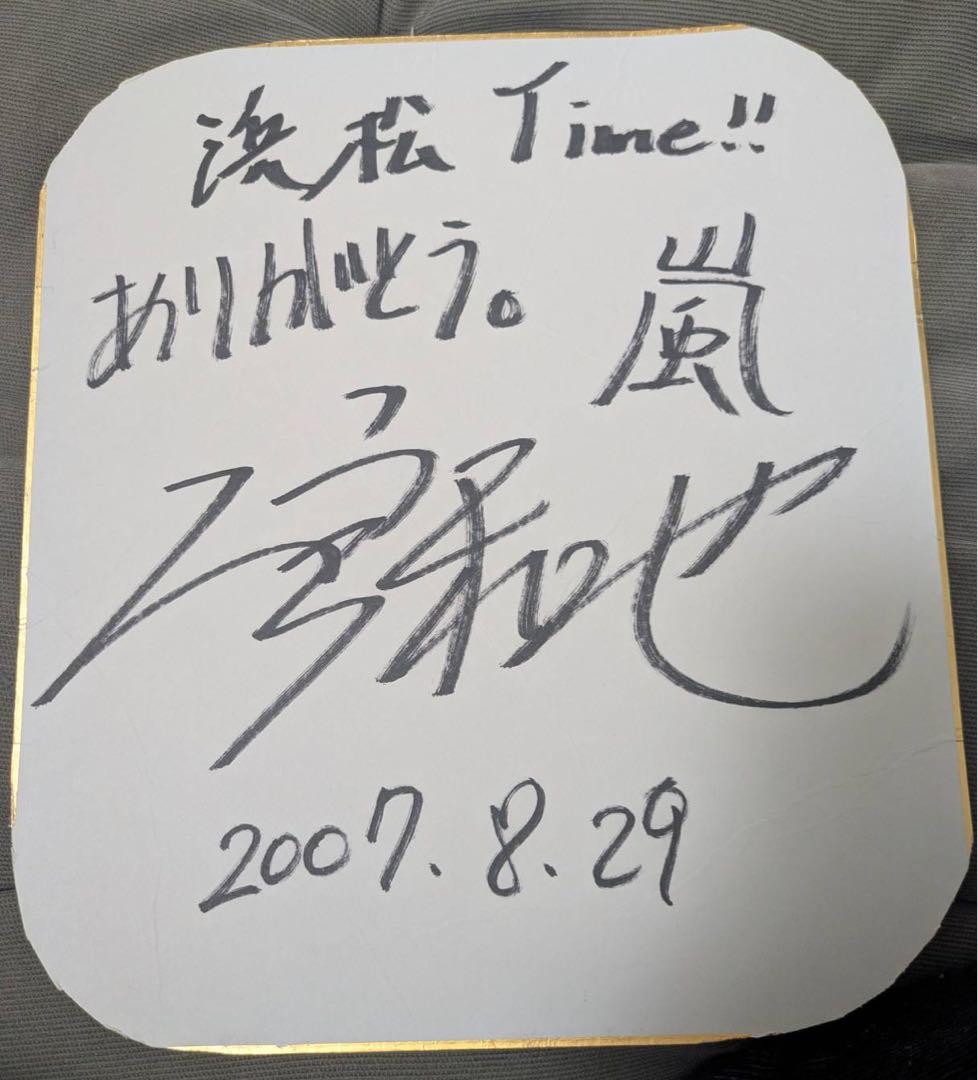 浜松 Time!!
ありがとう。 嵐
二宮和也
2007.8.29